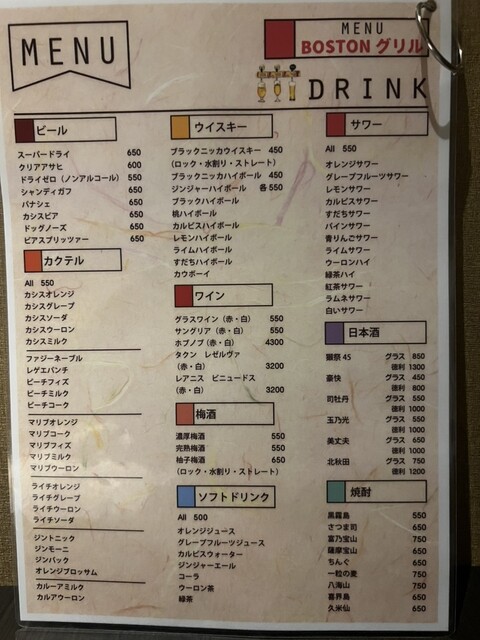 MENU
MENU
BOSTON グリル
DRINK
ビール
スーパードライ 650
クリアアサヒ 600
ドライゼロ（ノンアルコール） 550
シャンディガフ 650
パナシェ 650
カシスビア 650
ドッグノーズ 650
ビアスプリッツァー 650
カクテル
All 550
カシスオレンジ
カシスグレープ
カシスソーダ
カシスウーロン
カシスミルク
ファジーネーブル
レゲエパンチ
ピーチフィズ
ピーチミルク
ピーチコーク
マリブオレンジ
マリブコーク
マリブフィズ
マリブミルク
マリブウーロン
ライチオレンジ
ライチグレープ
ライチウーロン
ライチソーダ
ジントニック
ジンモーニ
ジンバック
オレンジブロッサム
カルーアミルク
カルアウーロン
ウイスキー
ブラックニッカウイスキー 450
（ロック・水割り・ストレート）
ブラックニッカハイボール 450
ジンジャーハイボール 各550
ブラックハイボール
桃ハイボール
カルピスハイボール
レモンハイボール
ライムハイボール
すだちハイボール
カウボーイ
ワイン
グラスワイン（赤・白） 550
サングリア（赤・白） 550
ホブノブ（赤・白） 4300
タクン レゼルヴァ
（赤・白） 3200
レアニス ピニュードス
（赤・白） 3200
梅酒
濃厚梅酒 550
完熟梅酒 550
柚子梅酒 650
（ロック・水割り・ストレート）
ソフトドリンク
All 500
オレンジジュース
グレープフルーツジュース
カルピスウォーター
ジンジャーエール
コーラ
ウーロン茶
緑茶
サワー
All 550
オレンジサワー
グレープフルーツサワー
レモンサワー
カルピスサワー
すだちサワー
パインサワー
青りんごサワー
ライムサワー
ウーロンハイ
緑茶ハイ
紅茶サワー
ラムネサワー
白いサワー
日本酒
獺祭45 グラス 850
徳利 1300
豪快 グラス 450
徳利 800
司牡丹 グラス 550
徳利 1000
玉乃光 グラス 550
徳利 1000
美丈夫 グラス 650
徳利 1000
北秋田 グラス 750
徳利 1200
焼酎
黒霧島 550
さつま司 650
富乃宝山 750
薩摩宝山 650
ちんぐ 650
一粒の麦 750
八海山 750
喜界島 650
久米仙 650